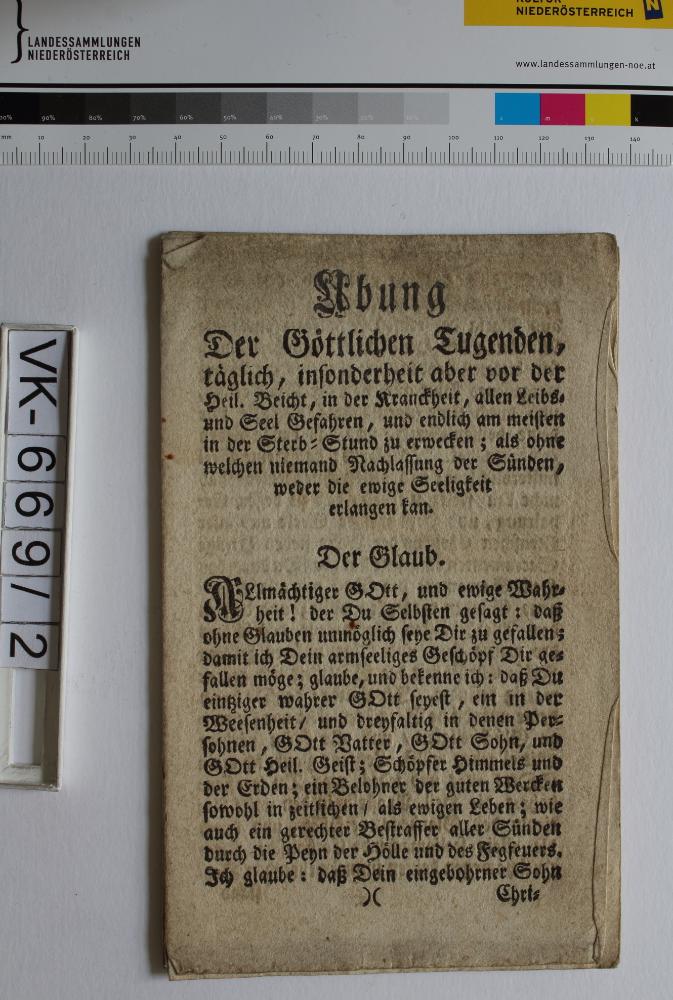 LANDESSAMMLUNGEN
NIEDERÖSTERREICH
KULTUR
NIEDERÖSTERREICH
N
www.landessammlungen-noe.at
90% 80% 70% 60% 50% 40% 30% 20% 10% c m y k
mm 10 20 30 40 50 60 70 80 90 100 110 120 130 140
VK-669/2
Ubung
Der Göttlichen Tugenden,
täglich, insonderheit aber vor der
Heil. Beicht, in der Kranckheit, allen Leibs-
und Seel Gefahren, und endlich am meisten
in der Sterb-Stund zu erwecken; als ohne
welchen niemand Nachlassung der Sünden,
weder die ewige Seeligkeit
erlangen kan.
Der Glaub.
ALlmächtiger GOtt, und ewige Wahr-
heit! der Du Selbsten gesagt: daß
ohne Glauben unmöglich seye Dir zu gefallen;
damit ich Dein armseeliges Geschöpf Dir ge-
fallen möge; glaube, und bekenne ich: daß Du
eintziger wahrer GOtt seyest, ein in der
Weesenheit/ und dreyfaltig in denen Per-
sohnen, GOtt Vatter, GOtt Sohn, und
GOtt Heil. Geist; Schöpfer Himmels und
der Erden; ein Belohner der guten Wercken
sowohl in zeitlichen/ als ewigen Leben; wie
auch ein gerechter Bestraffer aller Sünden
durch die Peyn der Hölle und des Fegfeuers.
Ich glaube: daß Dein eingebohrner Sohn
)( Chri-